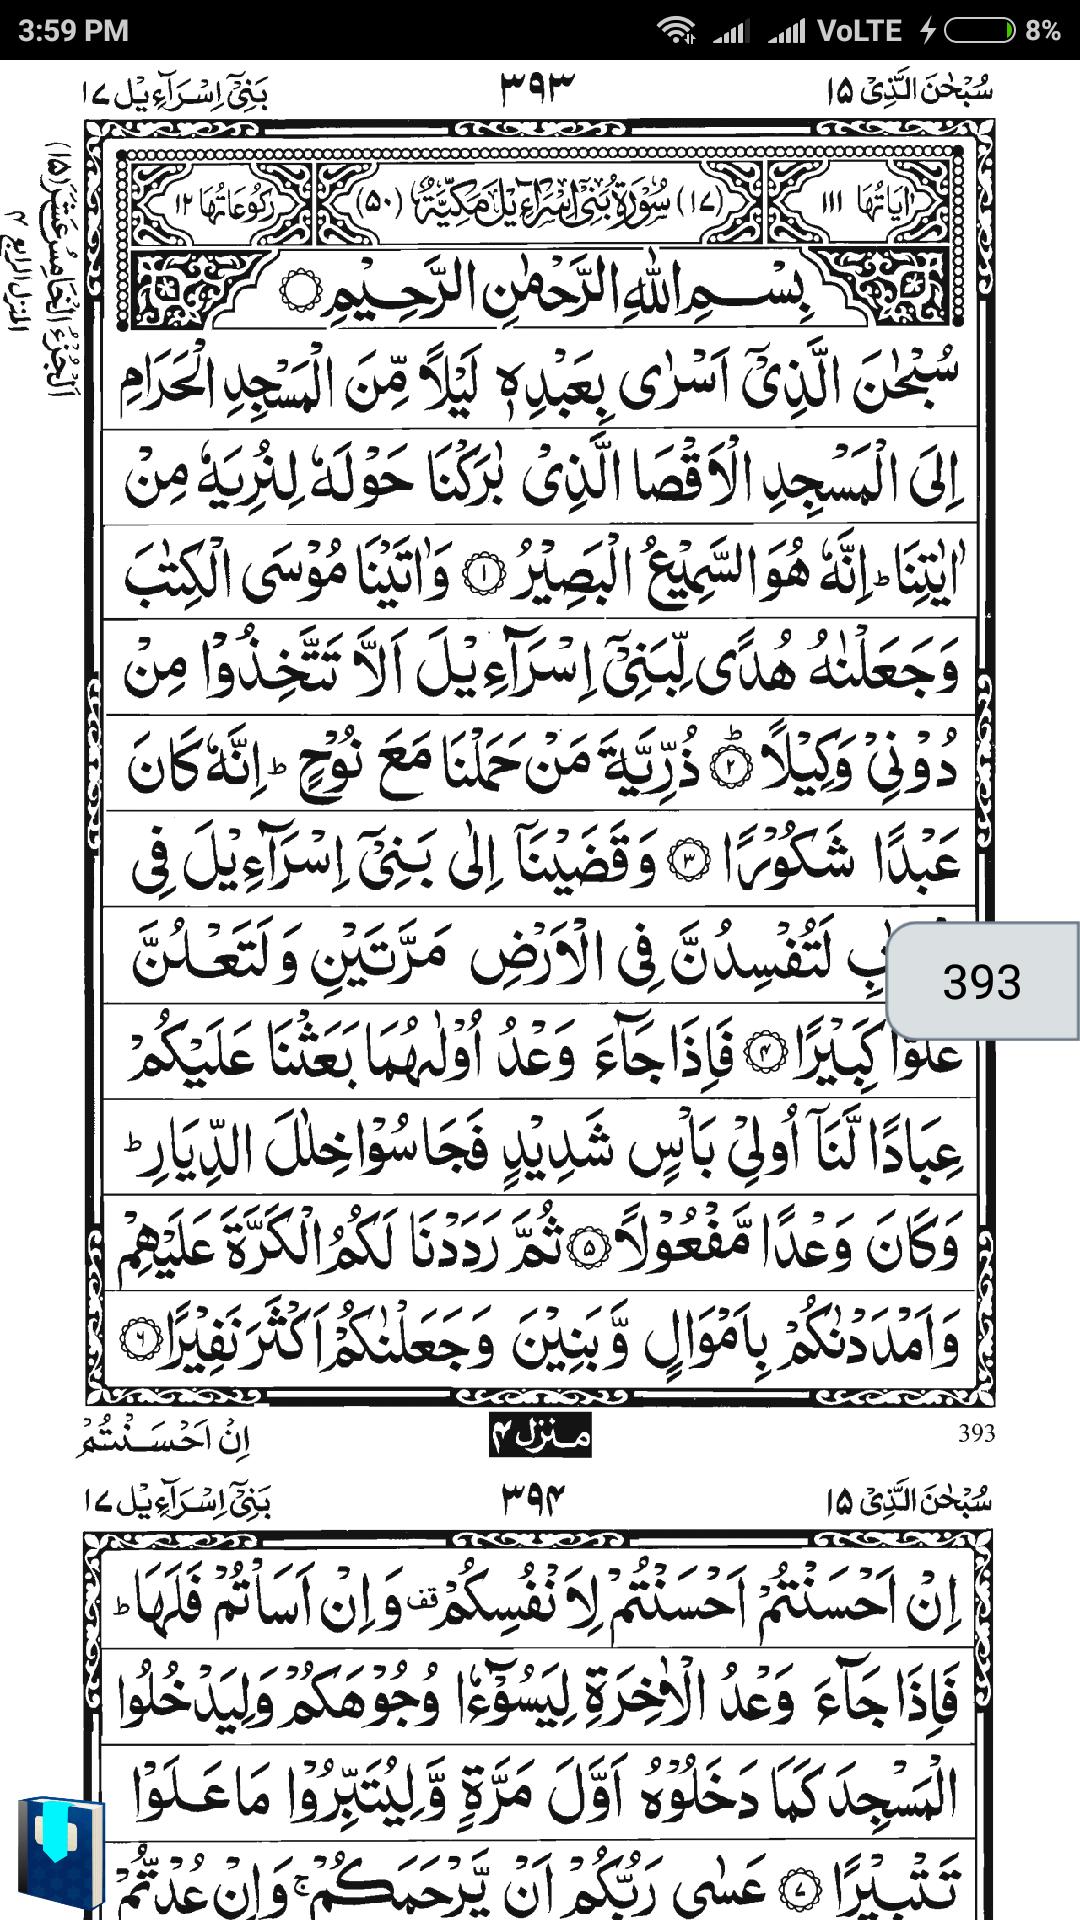 3:59 PM VoLTE 8%
سُبْحٰنَ الَّذِیْ ۱۵ ۳۹۳ بَنِیْۤ اِسْرَآءِیْل ۱۷
اَلْجُزْءُ الْخَامِسُ عَشَرَ (۱۵)
المنزل الرابع ۴
اٰیَاتُهَا ۱۱۱ (۱۷) سُوْرَةُ بَنِیْۤ اِسْرَآءِیْلَ مَكِّیَّةٌ (۵۰) رُكُوْعَاتُهَا ۱۲
بِسْمِ اللّٰهِ الرَّحْمٰنِ الرَّحِیْمِ
سُبْحٰنَ الَّذِیْۤ اَسْرٰی بِعَبْدِهٖ لَیْلًا مِّنَ الْمَسْجِدِ الْحَرَامِ
اِلَی الْمَسْجِدِ الْاَقْصَا الَّذِیْ بٰرَكْنَا حَوْلَهٗ لِنُرِیَهٗ مِنْ
اٰیٰتِنَا ؕ اِنَّهٗ هُوَ السَّمِیْعُ الْبَصِیْرُ ۱ وَاٰتَیْنَا مُوْسَی الْكِتٰبَ
وَجَعَلْنٰهُ هُدًی لِّبَنِیْۤ اِسْرَآءِیْلَ اَلَّا تَتَّخِذُوْا مِنْ
دُوْنِیْ وَكِیْلًا ۲ؕ ذُرِّیَّةَ مَنْ حَمَلْنَا مَعَ نُوْحٍ ؕ اِنَّهٗ كَانَ
عَبْدًا شَكُوْرًا ۳ وَقَضَیْنَاۤ اِلٰی بَنِیْۤ اِسْرَآءِیْلَ فِی
لَتُفْسِدُنَّ فِی الْاَرْضِ مَرَّتَیْنِ وَلَتَعْلُنَّ
393
عُلُوًّا كَبِیْرًا ۴ فَاِذَا جَآءَ وَعْدُ اُوْلٰىهُمَا بَعَثْنَا عَلَیْكُمْ
عِبَادًا لَّنَاۤ اُولِیْ بَاْسٍ شَدِیْدٍ فَجَاسُوْا خِلٰلَ الدِّیَارِ ؕ
وَكَانَ وَعْدًا مَّفْعُوْلًا ۵ ثُمَّ رَدَدْنَا لَكُمُ الْكَرَّةَ عَلَیْهِمْ
وَاَمْدَدْنٰكُمْ بِاَمْوَالٍ وَّبَنِیْنَ وَجَعَلْنٰكُمْ اَكْثَرَ نَفِیْرًا ۶
اِنْ اَحْسَنْتُمْ منزل ۴ 393
سُبْحٰنَ الَّذِیْ ۱۵ ۳۹۴ بَنِیْۤ اِسْرَآءِیْل ۱۷
اِنْ اَحْسَنْتُمْ اَحْسَنْتُمْ لِاَنْفُسِكُمْ قف وَاِنْ اَسَاْتُمْ فَلَهَا ؕ
فَاِذَا جَآءَ وَعْدُ الْاٰخِرَةِ لِیَسُوْٓءٗا وُجُوْهَكُمْ وَلِیَدْخُلُوا
الْمَسْجِدَ كَمَا دَخَلُوْهُ اَوَّلَ مَرَّةٍ وَّلِیُتَبِّرُوْا مَا عَلَوْا
تَتْبِیْرًا ۷ عَسٰی رَبُّكُمْ اَنْ یَّرْحَمَكُمْ ۚ وَاِنْ عُدْتُّمْ